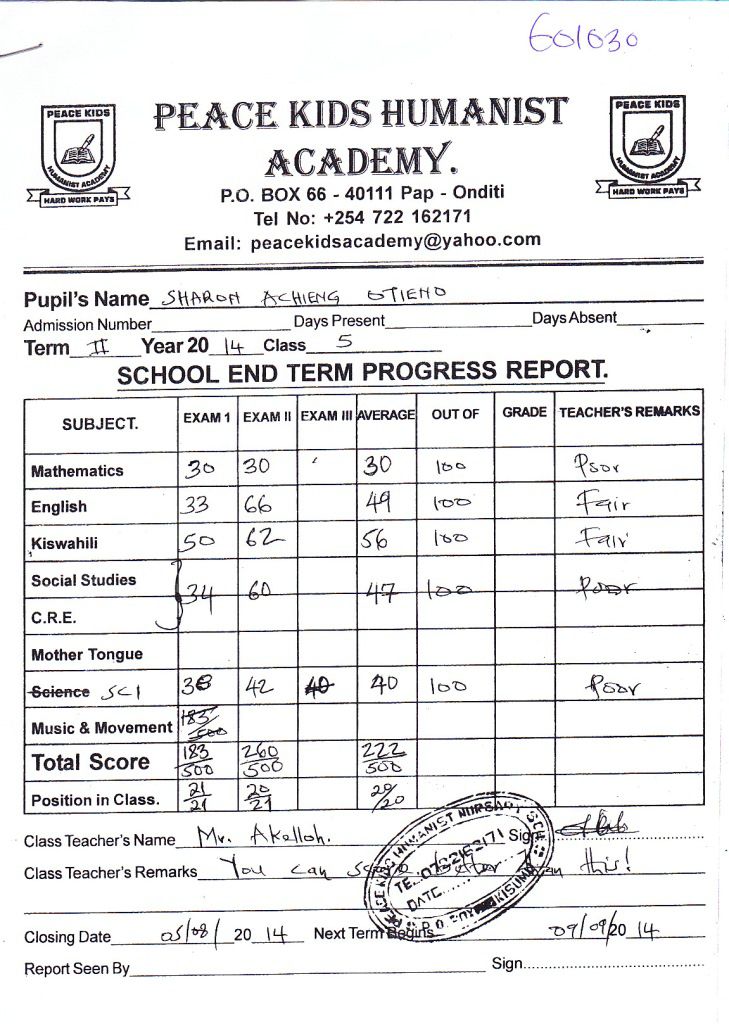 601030
PEACE KIDS
HUMANIST ACADEMY
HARD WORK PAYS
PEACE KIDS HUMANIST
ACADEMY.
PEACE KIDS
HUMANIST ACADEMY
HARD WORK PAYS
P.O. BOX 66 - 40111 Pap - Onditi
Tel No: +254 722 162171
Email: peacekidsacademy@yahoo.com
Pupil's Name SHARON ACHIENG OTIENO
Admission Number Days Present Days Absent
Term II Year 20 14 Class 5
SCHOOL END TERM PROGRESS REPORT.
SUBJECT. EXAM 1 EXAM II EXAM III AVERAGE OUT OF GRADE TEACHER'S REMARKS
Mathematics 30 30 30 100 Poor
English 33 66 49 100 Fair
Kiswahili 50 62 56 100 Fair
Social Studies
34 60 47 100 Poor
C.R.E.
Mother Tongue
Science SCI 38 42 40 40 100 Poor
Music & Movement 183/500
Total Score 183/500 260/500 222/500
Position in Class. 21/21 20/21 20/20
Class Teacher's Name Mr. Akelloh. Sign
Class Teacher's Remarks You can score better than this!
PEACE KIDS HUMANIST NURSARY SCH
TEL 0722162171
DATE
P.O. BOX KISUMU
Closing Date 05/08/ 20 14 Next Term Begins 09/09/20 14
Report Seen By Sign